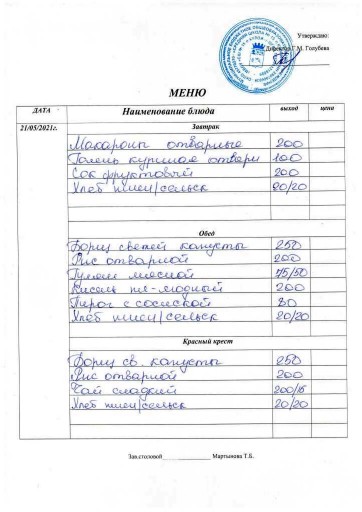 Утверждаю:
Директор Г.М. Голубева
МЕНЮ
ДАТА Наименование блюда выход цена
21/05/2021г. Завтрак
Макароны отварные 200
Голень куриная отварн 100
Сок фруктовый 200
Хлеб пшен/сельск 20/20
Обед
Борщ свежей капусты 250
Рис отварной 200
Гуляш мясной 75/50
Кисель пл-ягодный 200
Пирог с сосиской 80
Хлеб пшен/сельск 20/20
Красный крест
Борщ св. капусты 250
Рис отварной 200
Чай сладкий 200/15
Хлеб пшен/сельск 20/20
Зав.столовой Мартынова Т.Б.